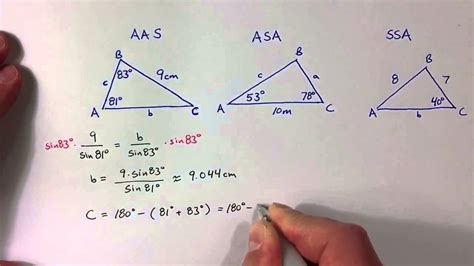 AAS ASA SSA
B B B
83° 9cm c a 8 7
c
81° 53° 78° 40°
A b C A 10m C A b C
sin83° · 9/sin81° = b/sin83° · sin83°
b = 9·sin83°/sin81° ≈ 9.044cm
C = 180° - (81° + 83°) = 180° -